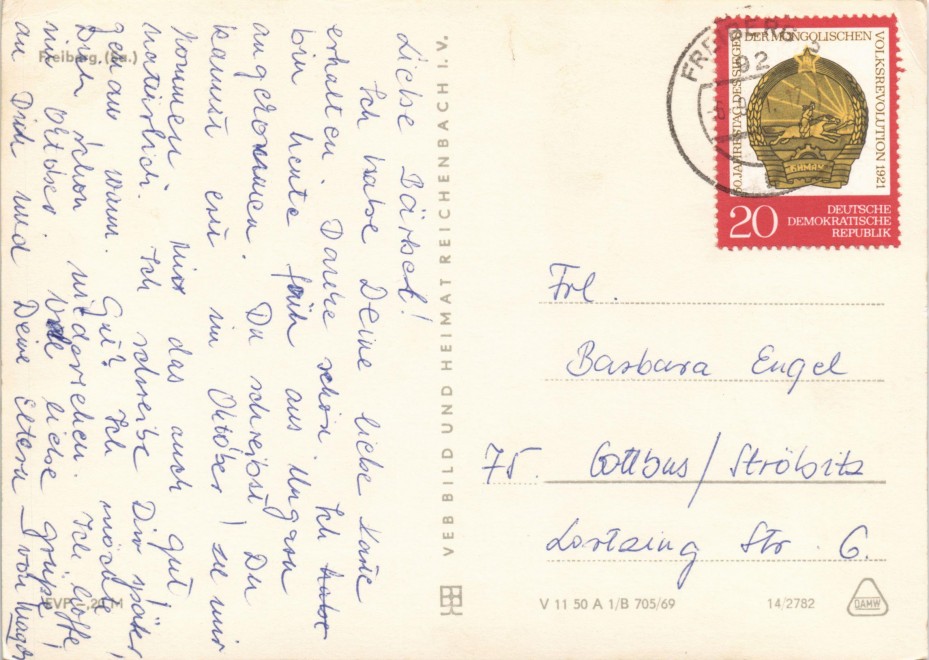 Freiberg, (Sa.)
Liebe Bärbel!
Ich habe Deine liebe Karte
erhalten. Danke schön. Ich
bin heute früh aus Ungarn
angekommen. Du schreibst Du
kannst erst im Oktober zu mir
kommen. Mir das auch gut
natürlich. Ich schreibe Dir später
genau wann. Gut? Ich möchte
Dich schon wiedersehen. Ich hoffe
im Oktober. Viele liebe Grüße
an Dich und Deine Eltern von
EVP
VEB BILD UND HEIMAT REICHENBACH I. V.
FREIBERG
92
50. JAHRESTAG DES SIEGES DER MONGOLISCHEN VOLKSREVOLUTION 1921
БНМАУ
20 DEUTSCHE
DEMOKRATISCHE
REPUBLIK
Frl.
Barbara Engel
75. Cottbus/Ströbitz
Lortzing Str. 6.
V 11 50 A 1/B 705/69
14/2782
DAMW